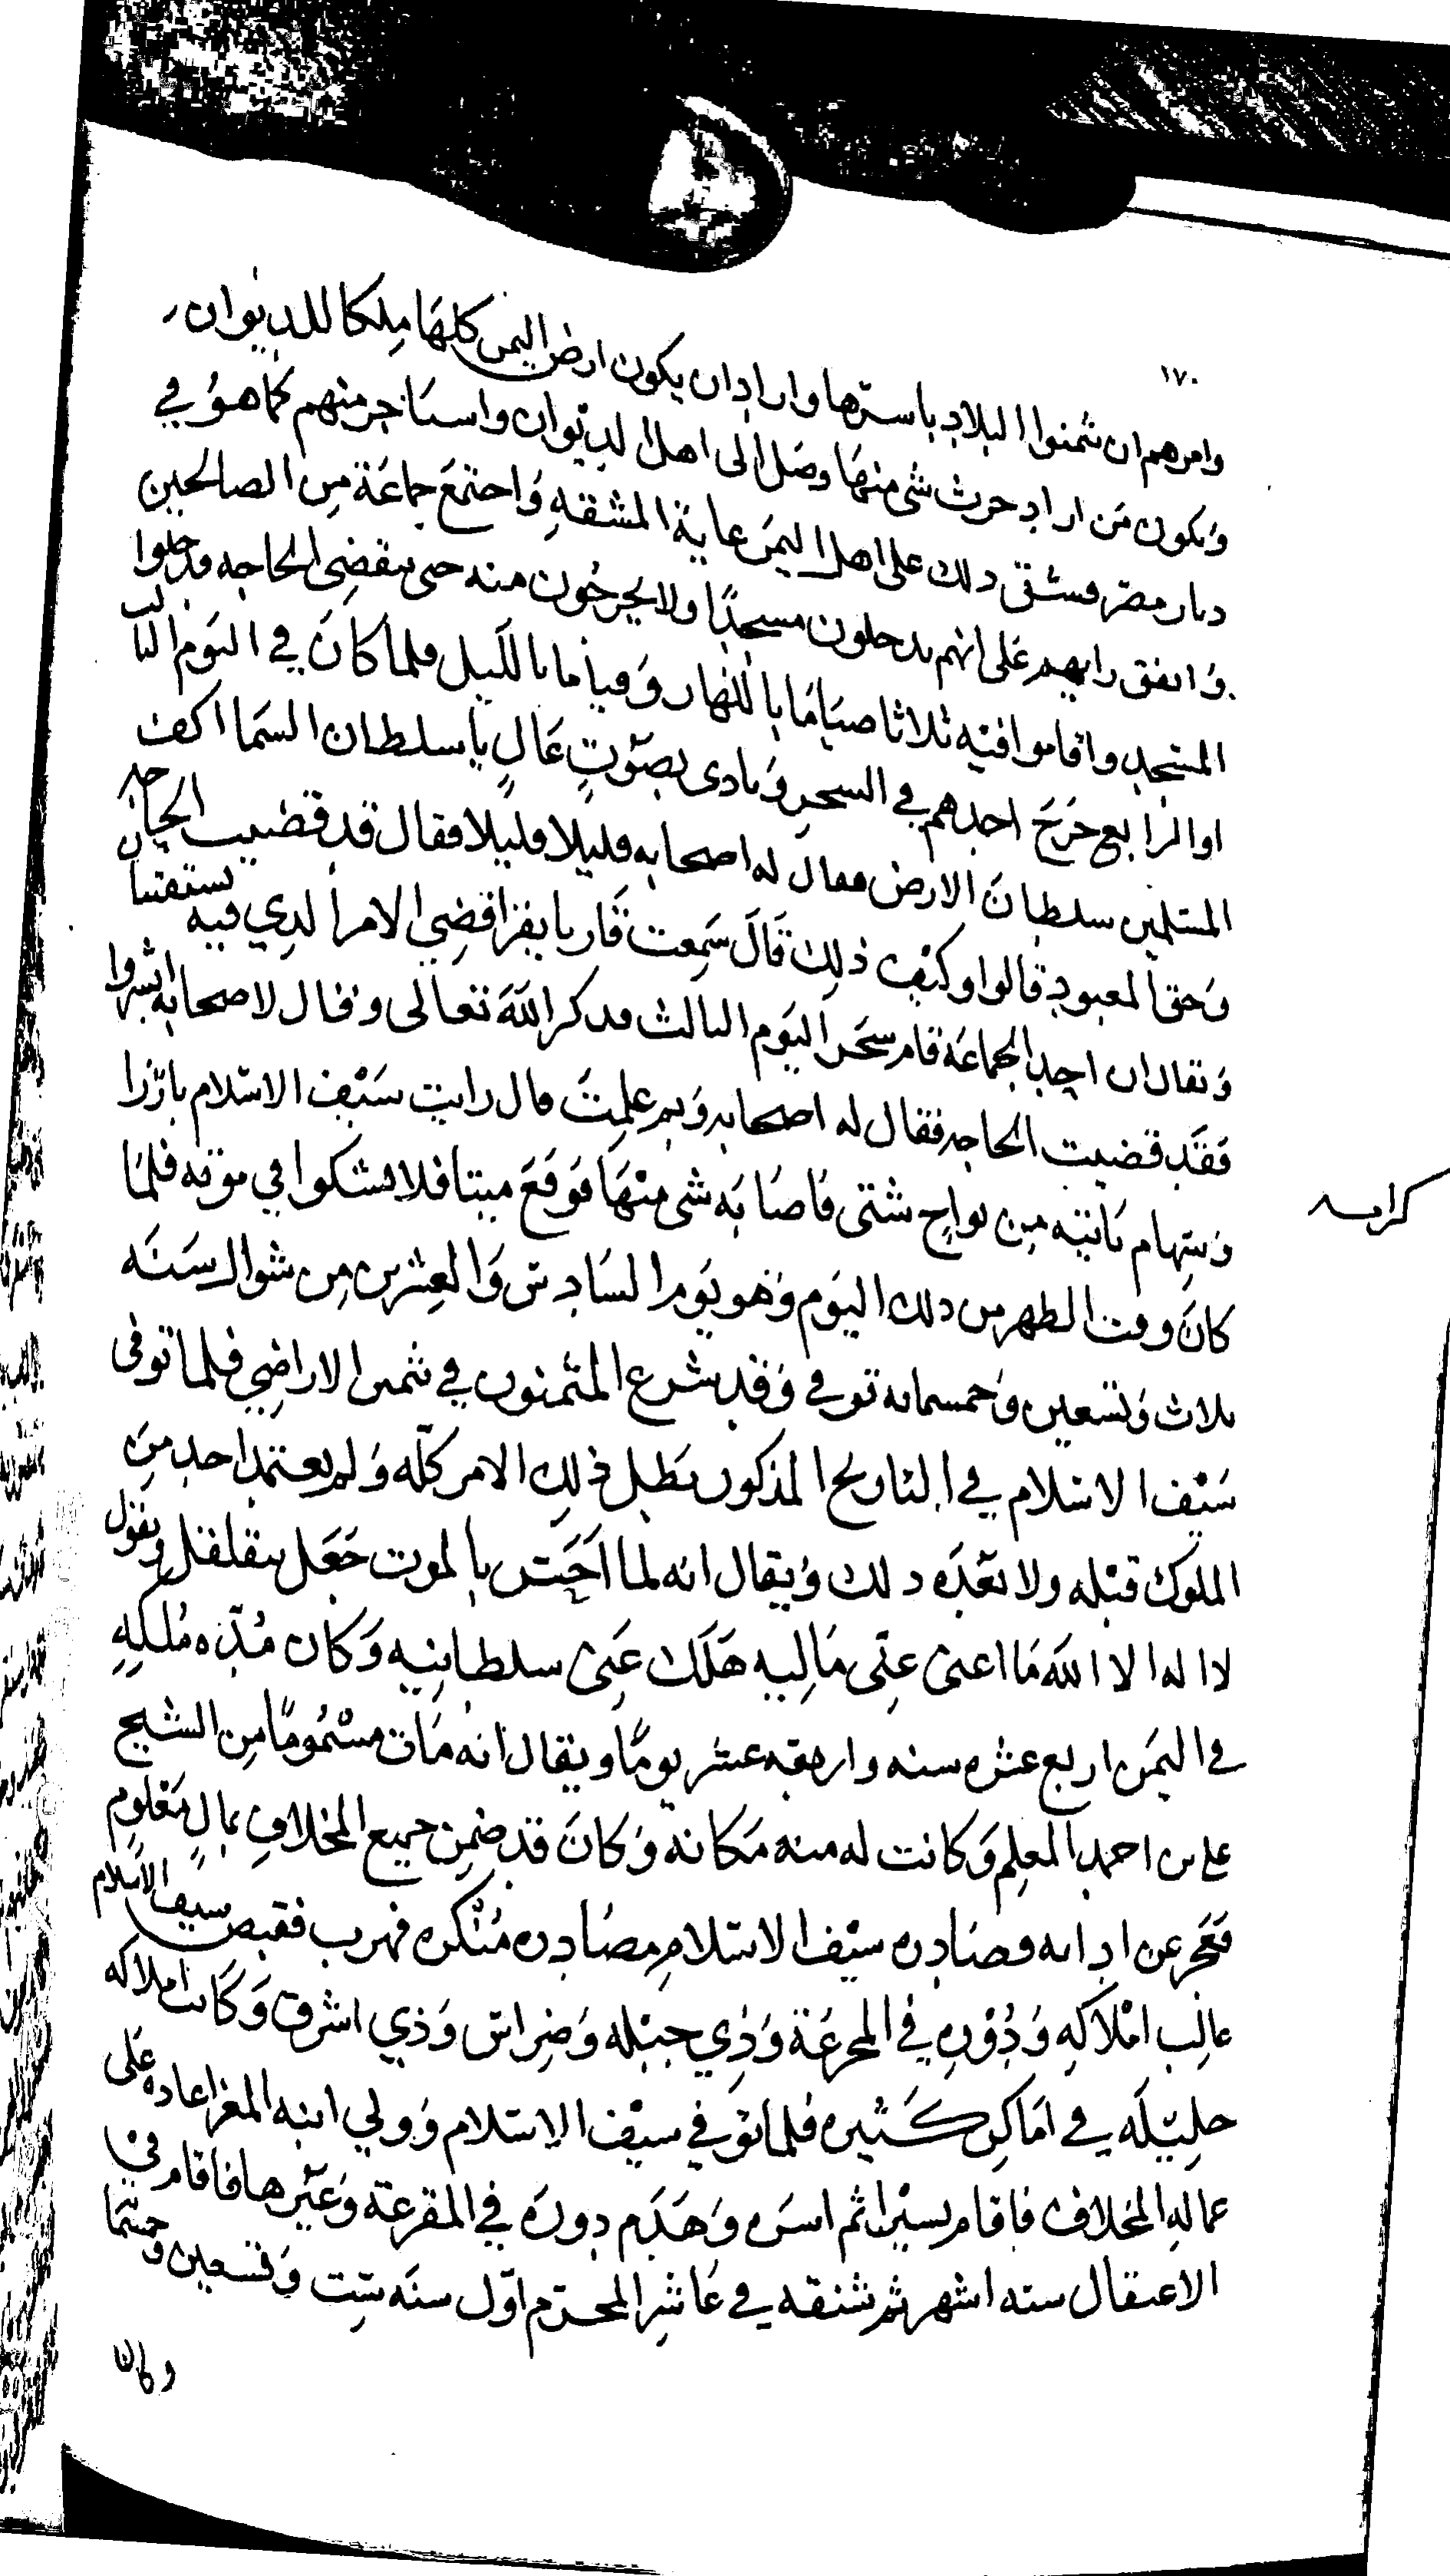 ١٧٠
وامرهم ان يثمنوا البلاد باسرها واراد ان يكون ارض اليمن كلها ملكا للديوان
ويكون من اراد حرث شي منها وصل الى اهل الديوان واستاجر منهم كما هو في
ديار مصر فشق ذلك على اهل اليمن غاية المشقه واجتمع جماعة من الصالحين
واتفق رايهم على انهم يدخلون مسجدا ولا يخرجون منه حتى تنقضي الحاجه فدخلوا
المسجد واقاموا فيه ثلاثا صياما بالنهار وقياما بالليل فلما كان في اليوم الثالث
او الرابع خرج احدهم في السحر ونادى بصوت عال يا سلطان السما اكف
المسلمين سلطان الارض فقال له اصحابه قليلا قليلا فقال قد قضيت الحاجه
وحق المعبود قالوا وكيف ذلك قال سمعت قاريا يقرا قضي الامر الذي فيه تستفتيان
ويقال ان احد الجماعة قام سحر اليوم الثالث فذكر الله تعالى وقال لاصحابه ابشروا
فقد قضيت الحاجه فقال له اصحابه وبم علمت قال رايت سيف الاسلام بارزا
وسهام تاتيه من نواح شتى فاصابه شي منها فوقع ميتا فلا تشكوا في موته فلما
كرامه
كان وقت الظهر من ذلك اليوم وهو يوم السادس والعشرين من شوال سنه
ثلاث وتسعين وخمسمايه توفي وقد شرع المثمنون في تثمين الاراضي فلما توفى
سيف الاسلام في التاريخ المذكور بطل ذلك الامر كله ولم يعتمد احد من
الملوك قبله ولا بعده ذلك ويقال انه لما احس بالموت جعل يتقلقل ويقول
لا اله الا الله ما اغنى عني ماليه هلك عني سلطانيه وكان مده ملكه
في اليمن اربع عشره سنه واربعه عشر يوما ويقال انه مات مسموما من الشيخ
علي بن احمد المعلم وكانت له منه مكانة وكان قد ضمن جميع المخلاف بمال معلوم
فعجز عن ادائه وصادره سيف الاسلام مصادره منكره فهرب فقبض سيف الاسلام
غالب املاكه ودوره في المحرعة وذي جبله وضراس وذي اشرق وكانت املاكه
جليله في اماكن كثيره فلما توفي سيف الاسلام وولي ابنه المعز اعاده على
عماله المخلاف فاقام يسيرا ثم اسره وهدم دوره في المقرعة وغيرها فاقام في
الاعتقال سته اشهر ثم شنقه في عاشر المحرم اول سنه ست وتسعين وخمسما
وكان